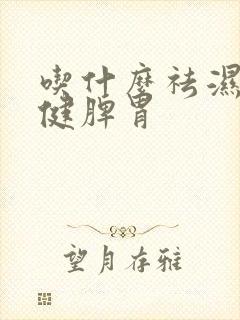 喫什麼祛濕
健脾胃
望月存雅